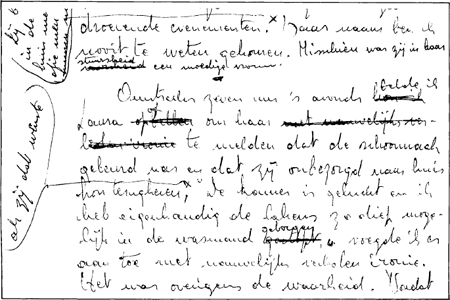 droevende evenementen. Haar naam ben ik
nooit te weten gekomen. Misschien was zij in haar
stuursheid
een moedige vrouw.
Omstreeks zeven uur 's avonds belde ik
Laura op om haar
te melden dat de schoonmaak
gebeurd was en dat zij onbezorgd naar huis
kon terugkeren. De kamer is gelucht en ik
heb eigenhandig de lakens zo diep moge-
lijk in de wasmand geborgen, voegde ik er
aan toe met nauwelijks verholen ironie.
Het was overigens de waarheid. Nadat
als zij dat wenst